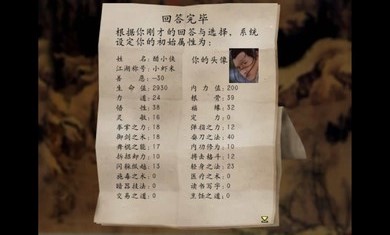 回答完毕
根据你刚才的回答与选择，系统
设定你的初始属性为：
姓 名：醋小侠
你的头像
江湖称号：小虾米
善 恶：-30
生命值：2930
内力值：200
力 道：24
根 骨：39
悟 性：38
福 缘：32
灵 敏：16
定 力：0
拳掌之力：18
弹指之力：12
御剑之术：18
奇刀之法：40
舞棍之能：17
内功修为：10
拆招卸力：10
搏击格斗：12
闪躲纵跃：15
轻身之法：23
施毒之术：0
医疗之术：0
暗器技法：0
读书写字：0
交易之道：0
烹饪之道：0